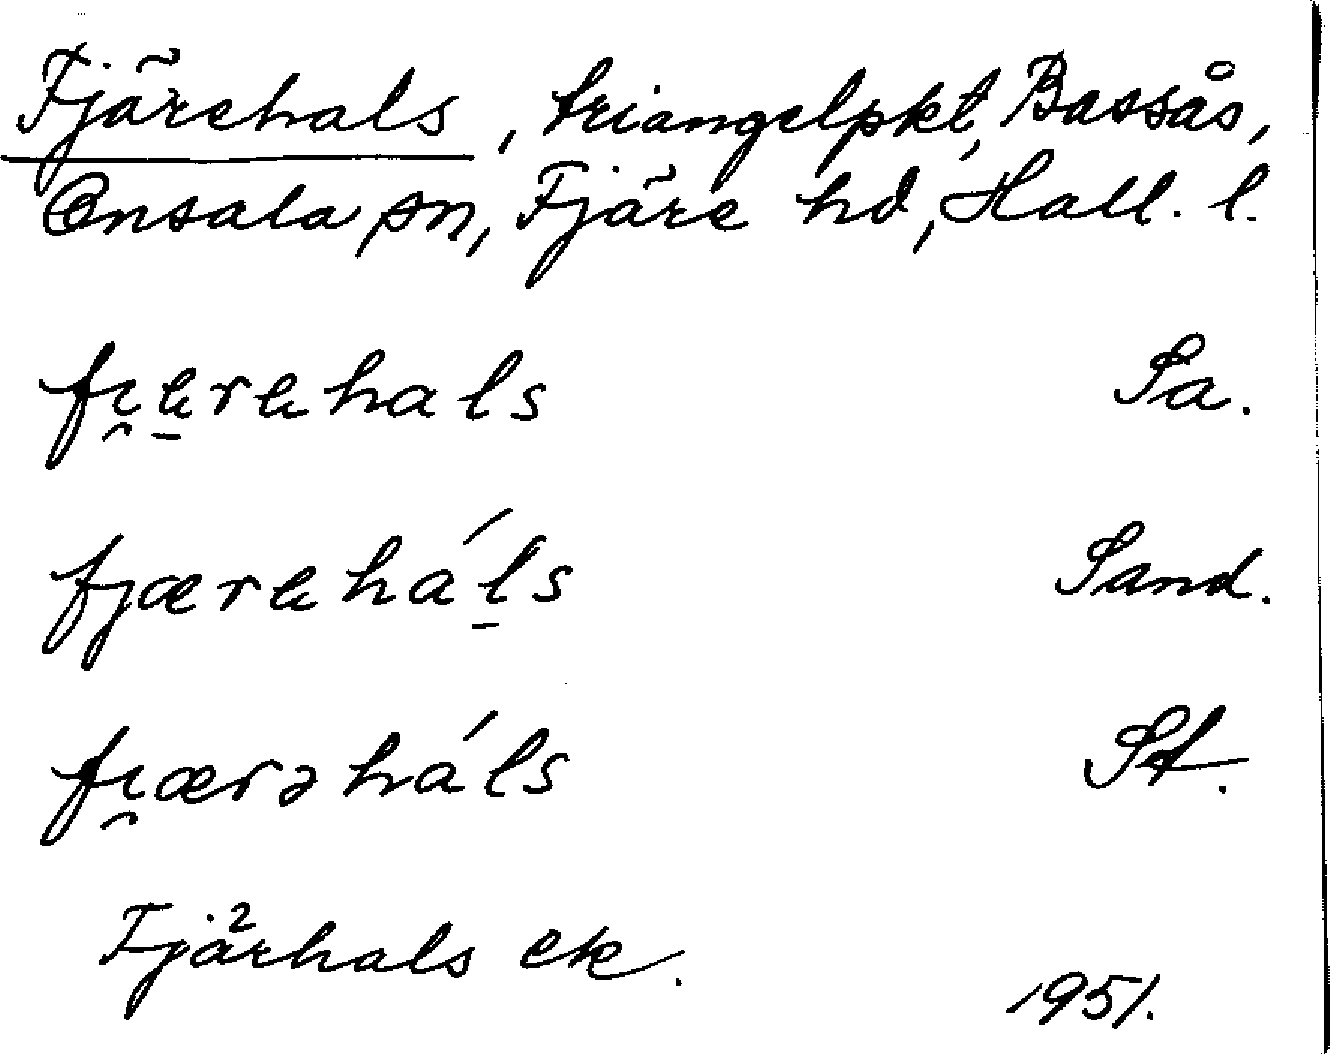 Fjärehals, triangelpkt, Bassås,
Onsala sn, Fjäre hd, Hall. l.
fi̯ɛ̱rɛhals Sa.
fjærɛhál̠s Sand.
fi̯ærəháls St.
Fjärhals ek. 1951.